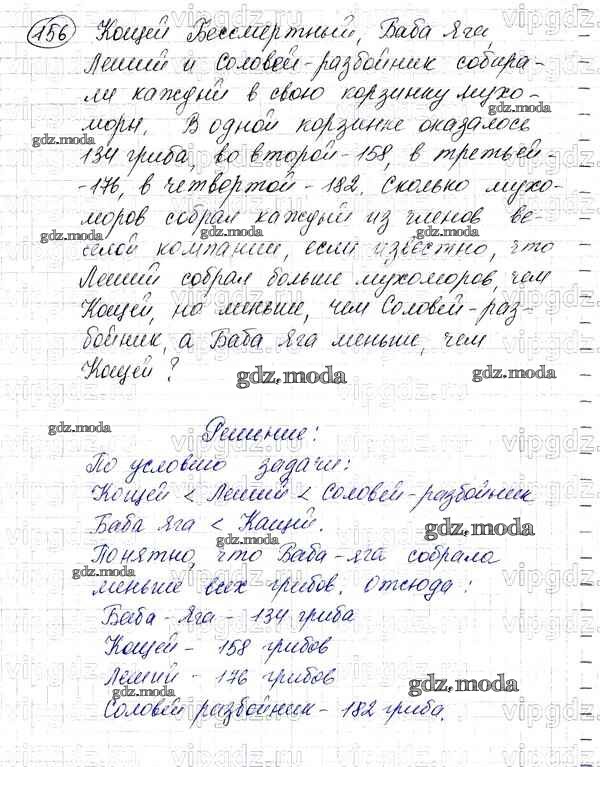 156 Кощей Бессмертный, Баба Яга,
Леший и Соловей-разбойник собира-
ли каждый в свою корзинку мухо-
моры. В одной корзинке оказалось
134 гриба, во второй - 158, в третьей -
-176, в четвертой - 182. Сколько мухо-
моров собрал каждый из членов ве-
селой компании, если известно, что
Леший собрал больше мухоморов, чем
Кощей, но меньше, чем Соловей-раз-
бойник, а Баба Яга меньше, чем
Кощей?
Решение:
По условию задачи:
Кощей < Леший < Соловей-разбойник
Баба Яга < Кащей.
Понятно, что Баба-яга собрала
меньше всех грибов. Отсюда:
Баба-Яга - 134 гриба
Кощей - 158 грибов
Леший - 176 грибов
Соловей разбойник - 182 гриба.